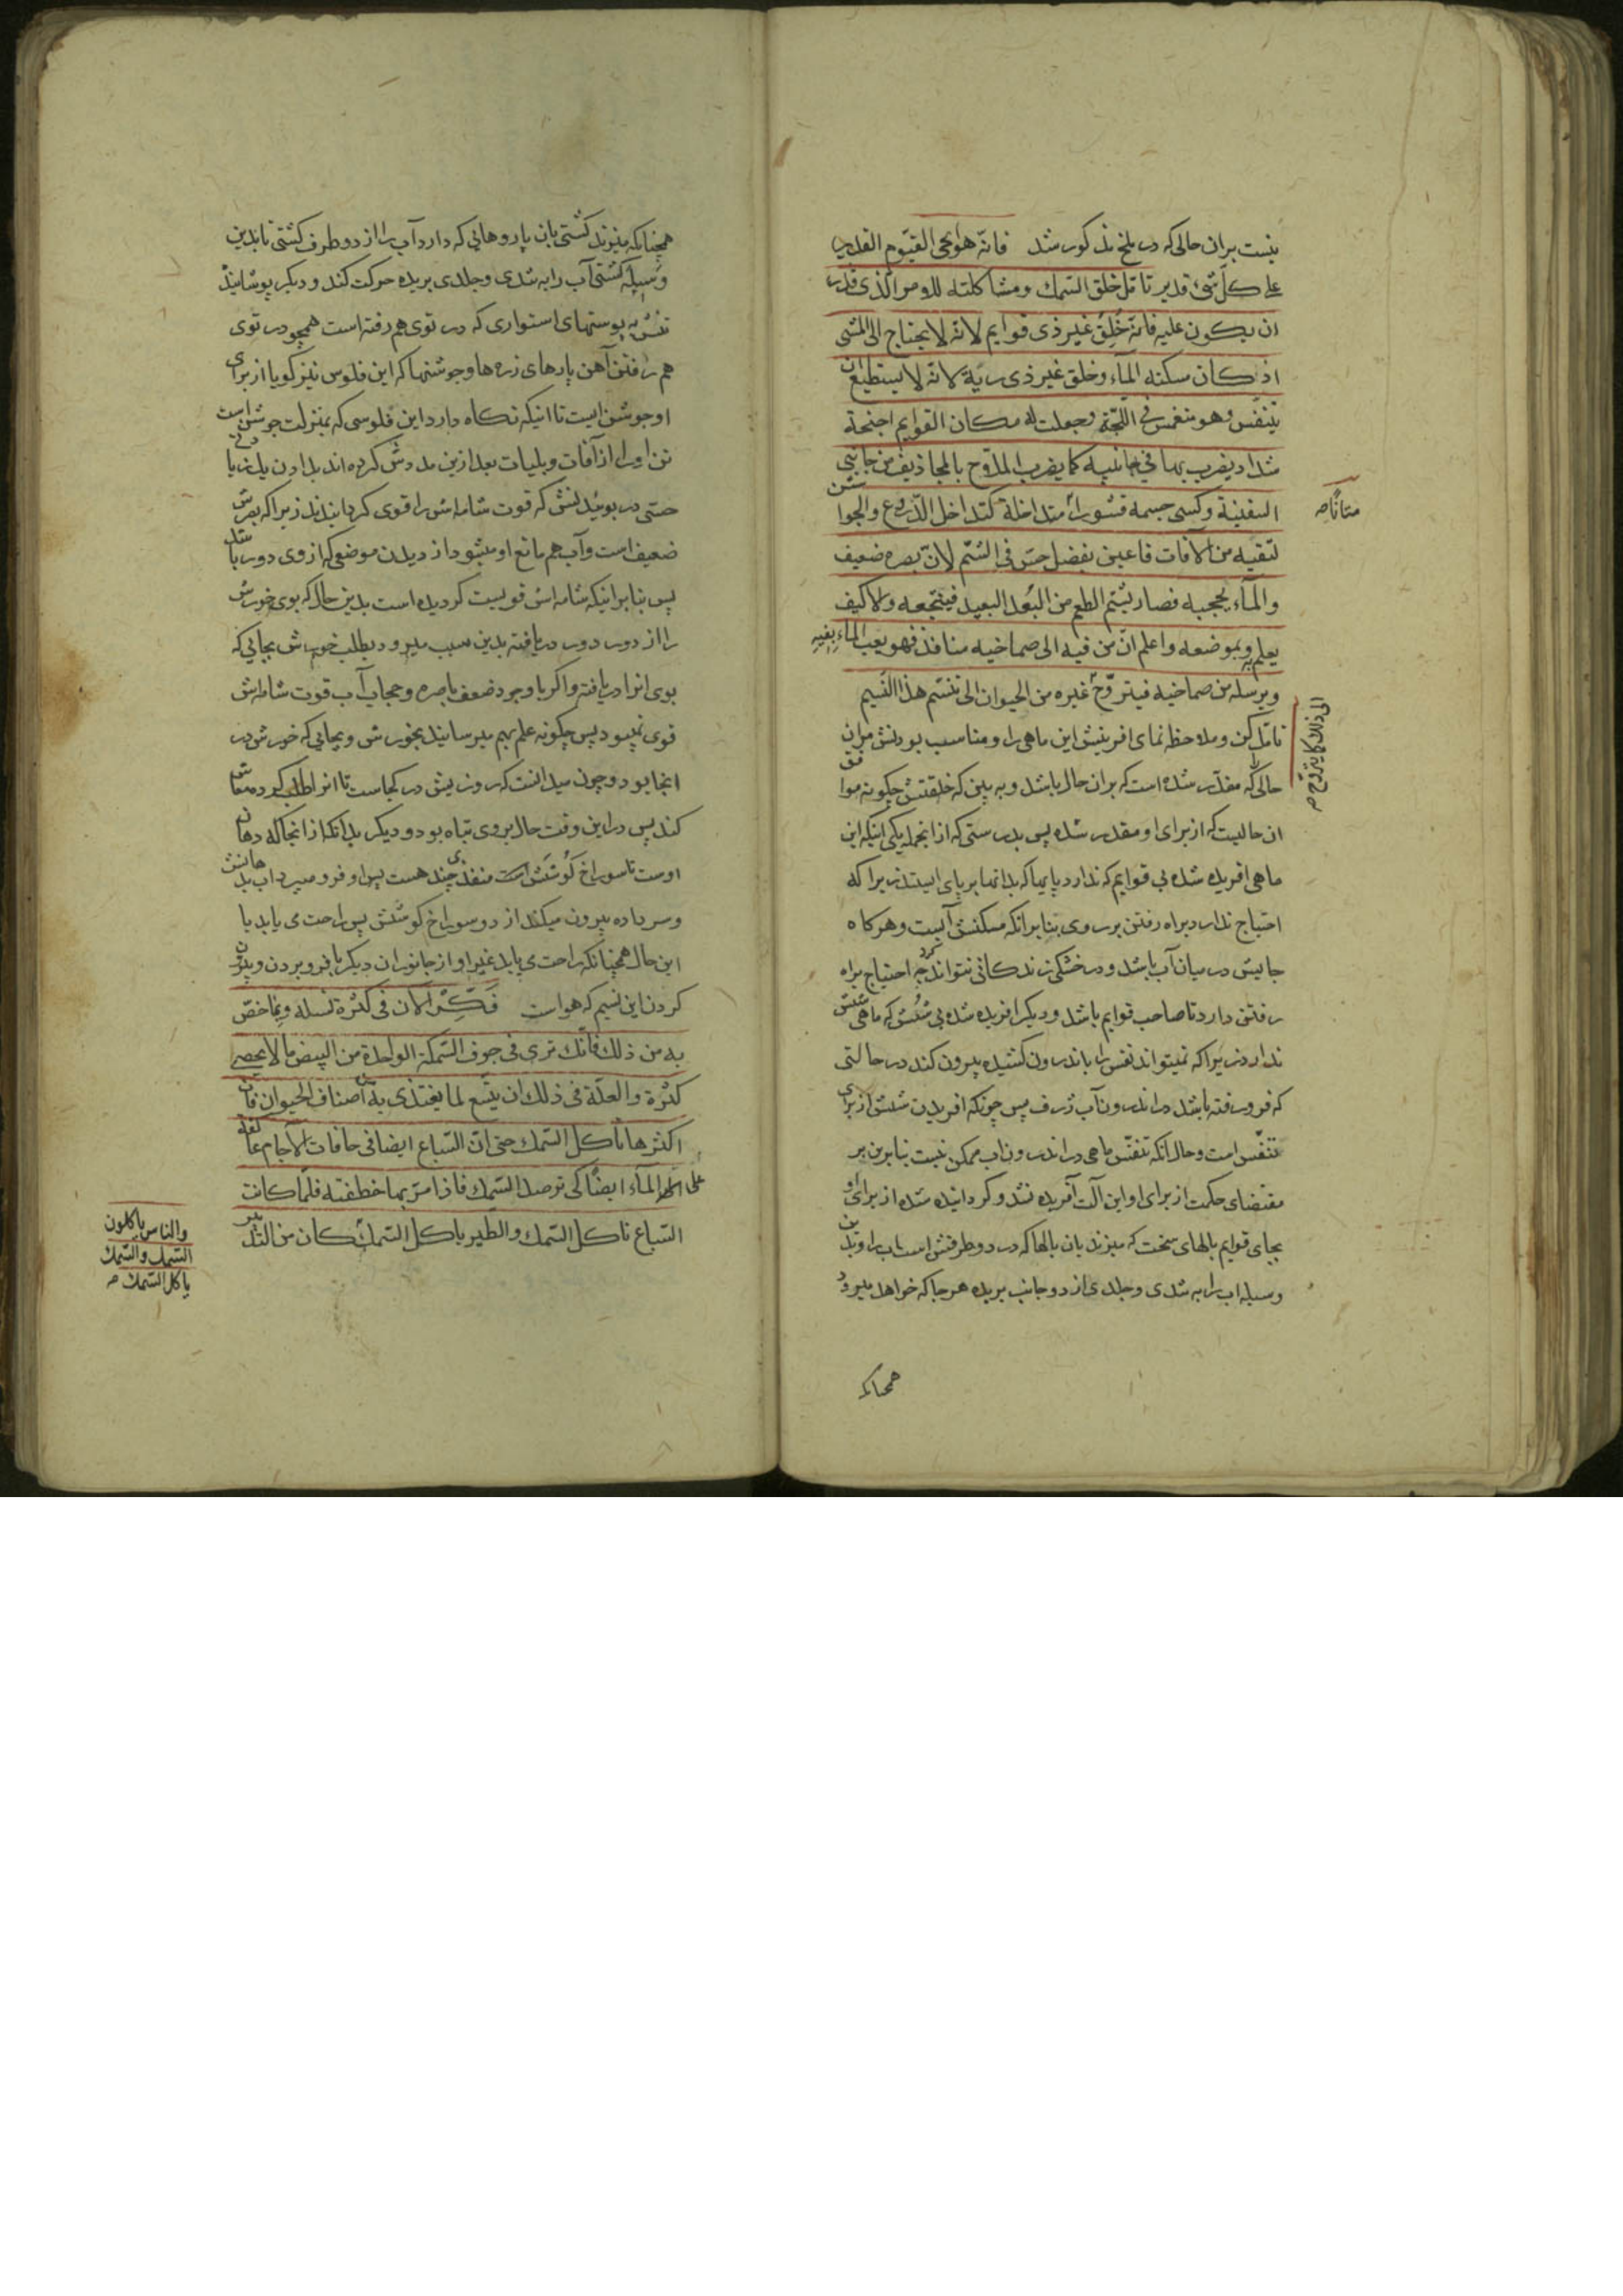 نیست بران حالی که در ملخ مذکور شد فانّه هوالحی القیّوم القدیر
علی کلّ شیء قدیر تامّل خلق السّمك ومشاکلته للامر الّذی قدر
ان یکون علیه فانّه خُلِقَ غیر ذی قوایم لانّه لا یحتاج الی المشی
اذ کان مسکنه المآء وخلق غیر ذی ریّة لانّه لا یستطیع ان
یتنفّس وهو منغمس فی اللّجّة وجعلت له مکان القوایم اجنحة
شداد یضرب بها فی جانبیه کما یضرب الملّاح بالمجاذیف من جانبی
السفینة وکسی جسمه قشوراً متداخلة کتداخل الدّروع والجواشن
متانًا ص
لتقیه من الآفات فاعین بفضل حسّ فی الشمّ لانّ بصره ضعیف
والمآء یحجبه فصار یشتم الطعم من البُعد البعید فینتجعه والّا کیف
یعلم به وبموضعه واعلم انّ من فیه الی صماخیه منافذ فهو یعب المآء بفیه
ویرسله من صماخیه فیتروّح غیره من الحیوان الی تنسّم هذا النّسیم
الی ذلك کما یتروّح ص
تامّل کن وملاحظه نمای افرینش این ماهی را ومناسب بودنش مران
حالی را که مقدّر شده است که بران حال باشد و به بین که خلقتش چکونه موافق
ان حالیست که از برای او مقدر شده پس بدرستی که از انجمله یکی اینکه این
ماهی افریده شده بی قوایم که ندارد پایها که بدانها بر پای ایستد زیرا که
احتیاج ندارد براه رفتن بر روی بنابرانکه مسکنش آبست وهرکاه
جایش در میان آب باشد ودر خشکی زندکانی نتواند کرد چه احتیاج براه
رفتن دارد تا صاحب قوایم باشد ودیکر افریده شده بی شُش که ماهی شش
ندارد زیرا که نمیتواند نفس را باندرون کشیده بیرون کند در حالتی
که فرو رفته باشد در اندرون آب ژرف پس چونکه افریدن شش از برای
تنفّس است وحال انکه تنفّس ماهی در اندرون اب ممکن نیست بنابرین بر
مقتضای حکمت از برای او این آلت آفریده نشد وکردانیده شده از برای او
بجای قوایم بالهای سخت که میزند بان بالها که در دو طرفش است اب را وبدین
وسیله اب را به تندی وجلدی از دو جانب بریده هرجا که خواهد میرود
همچنانکه
همچنانکه میزند کشتی بان پاروهایی که دارد آب را از دو طرف کشتی تا بدین
وسیله کشتی آب را به تندی وجلدی بریده حرکت کند ودیکر پوشانیده
تنش به پوستهای استواری که در توی هم رفته است همچو در توی
هم رفتن آهن پارهای زره ها وجوشنها که این فلوس نیز کویا از برای
او جوشن است تا اینکه نکاه دارد این فلوسی که بمنزلت جوشن است
تن او را از آفات وبلیات بعد ازین مددش کرده اند بدادن یك زیادتی
حسّی در بوئیدنش که قوت شامه اش را قوی کردانیدند زیرا که بصرش
ضعیف است وآب هم مانع او میشود از دیدن موضعی که از وی دور باشد
پس بنابرانیکه شامه اش قویست کردیده است بدین حال که بوی خورش
را از دور دور دریافته بدین سبب میرود بطلب خورش بجایی که
بوی انرا دریافته واکر با وجود ضعف باصره وحجاب آب قوت شامه اش
قوی نمیبود پس چکونه علم بهم میرسانید بخورش وبجایی که خورش در
انجا بود وچون میدانست که روزیش در کجاست تا انرا طلب کرده معاش
کند پس در این وقت حال بروی تباه بود ودیکر بدانکه از انجا که دهان
اوست تا سوراخ کوشش منفذی چند هست پس او فرو میبرد اب بدهانش
وسر داده بیرون میکند از دو سوراخ کوشش پس راحت می یابد با
این حال همچنانکه راحت می یابد غیر او از جانوران دیکر با فرو بردن وبیرون
کردن این نسیم که هواست فَکِّر الآن فی کثرة نسله وبما خصّ
به من ذلك فانّك تری فی جوف السّمکة الواحدة من البیض ما لا یحصی
کثرة والعلّة فی ذلك ان یتّسع لما یغتذی به من اصناف الحیوان فانّ
اکثرها تاکل السّمك حتی انّ السّباع ایضا فی حافات الآجام عاکفة
علی المآء ایضًا کی ترصد السّمك فاذا مرّ بها خطفته فلمّا کانت
السّباع تاکل السّمك والطّیر یاکل السّمك کان من التدبیر
والناس یاکلون
السّمك والسّمك
یاکل السّمك ص